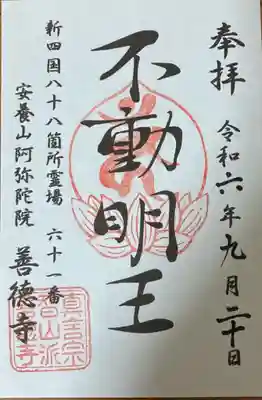 奉拝
令和六年九月二十日
不動明王
新四国八十八箇所霊場 六十一番
安養山阿弥陀院 善徳寺